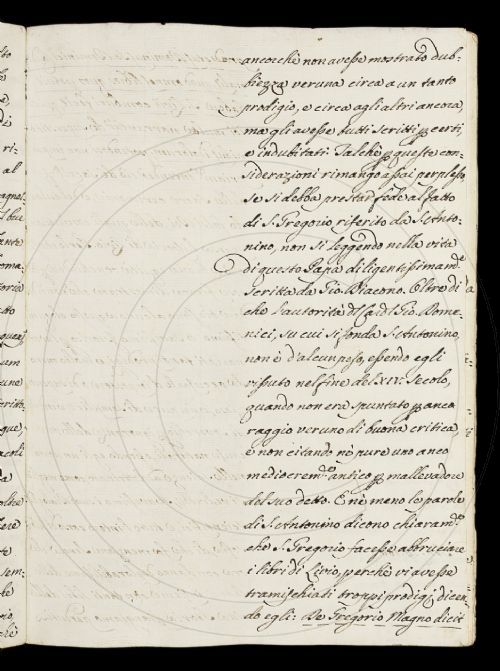 ancorchè non avesse mostrato dub-
biezza veruna circa a un tanto
prodigio, e circa agli altri ancora,
ma gli avesse tutti scritti p certi,
e indubitati. Talchè p queste con-
siderazioni rimango assai perplesso,
se si debba prestar fede al fatto
di S. Gregorio riferito da S. Anto-
nino, non si leggendo nella vita
di questo Papa diligentissimam.e
scritta da Gio. Diacono. Oltre di
che l'autorità d Card. Gio. Dome-
nici, su cui si fonda S. Antonino,
non è d'alcun peso, essendo egli
vissuto nel fine del XIV. secolo,
quando non era spuntato p anco
raggio veruno di buona critica,
e non citando nè pure uno anco
mediocrem.e antico p mallevadore
del suo detto. E nè meno le parole
di S. Antonino dicono chiaram.e
che S. Gregorio facesse abbruciare
i libri di Livio, perchè vi avesse
tramischiati troppi prodigj, dicen-
do egli: De Gregorio Magno dicit